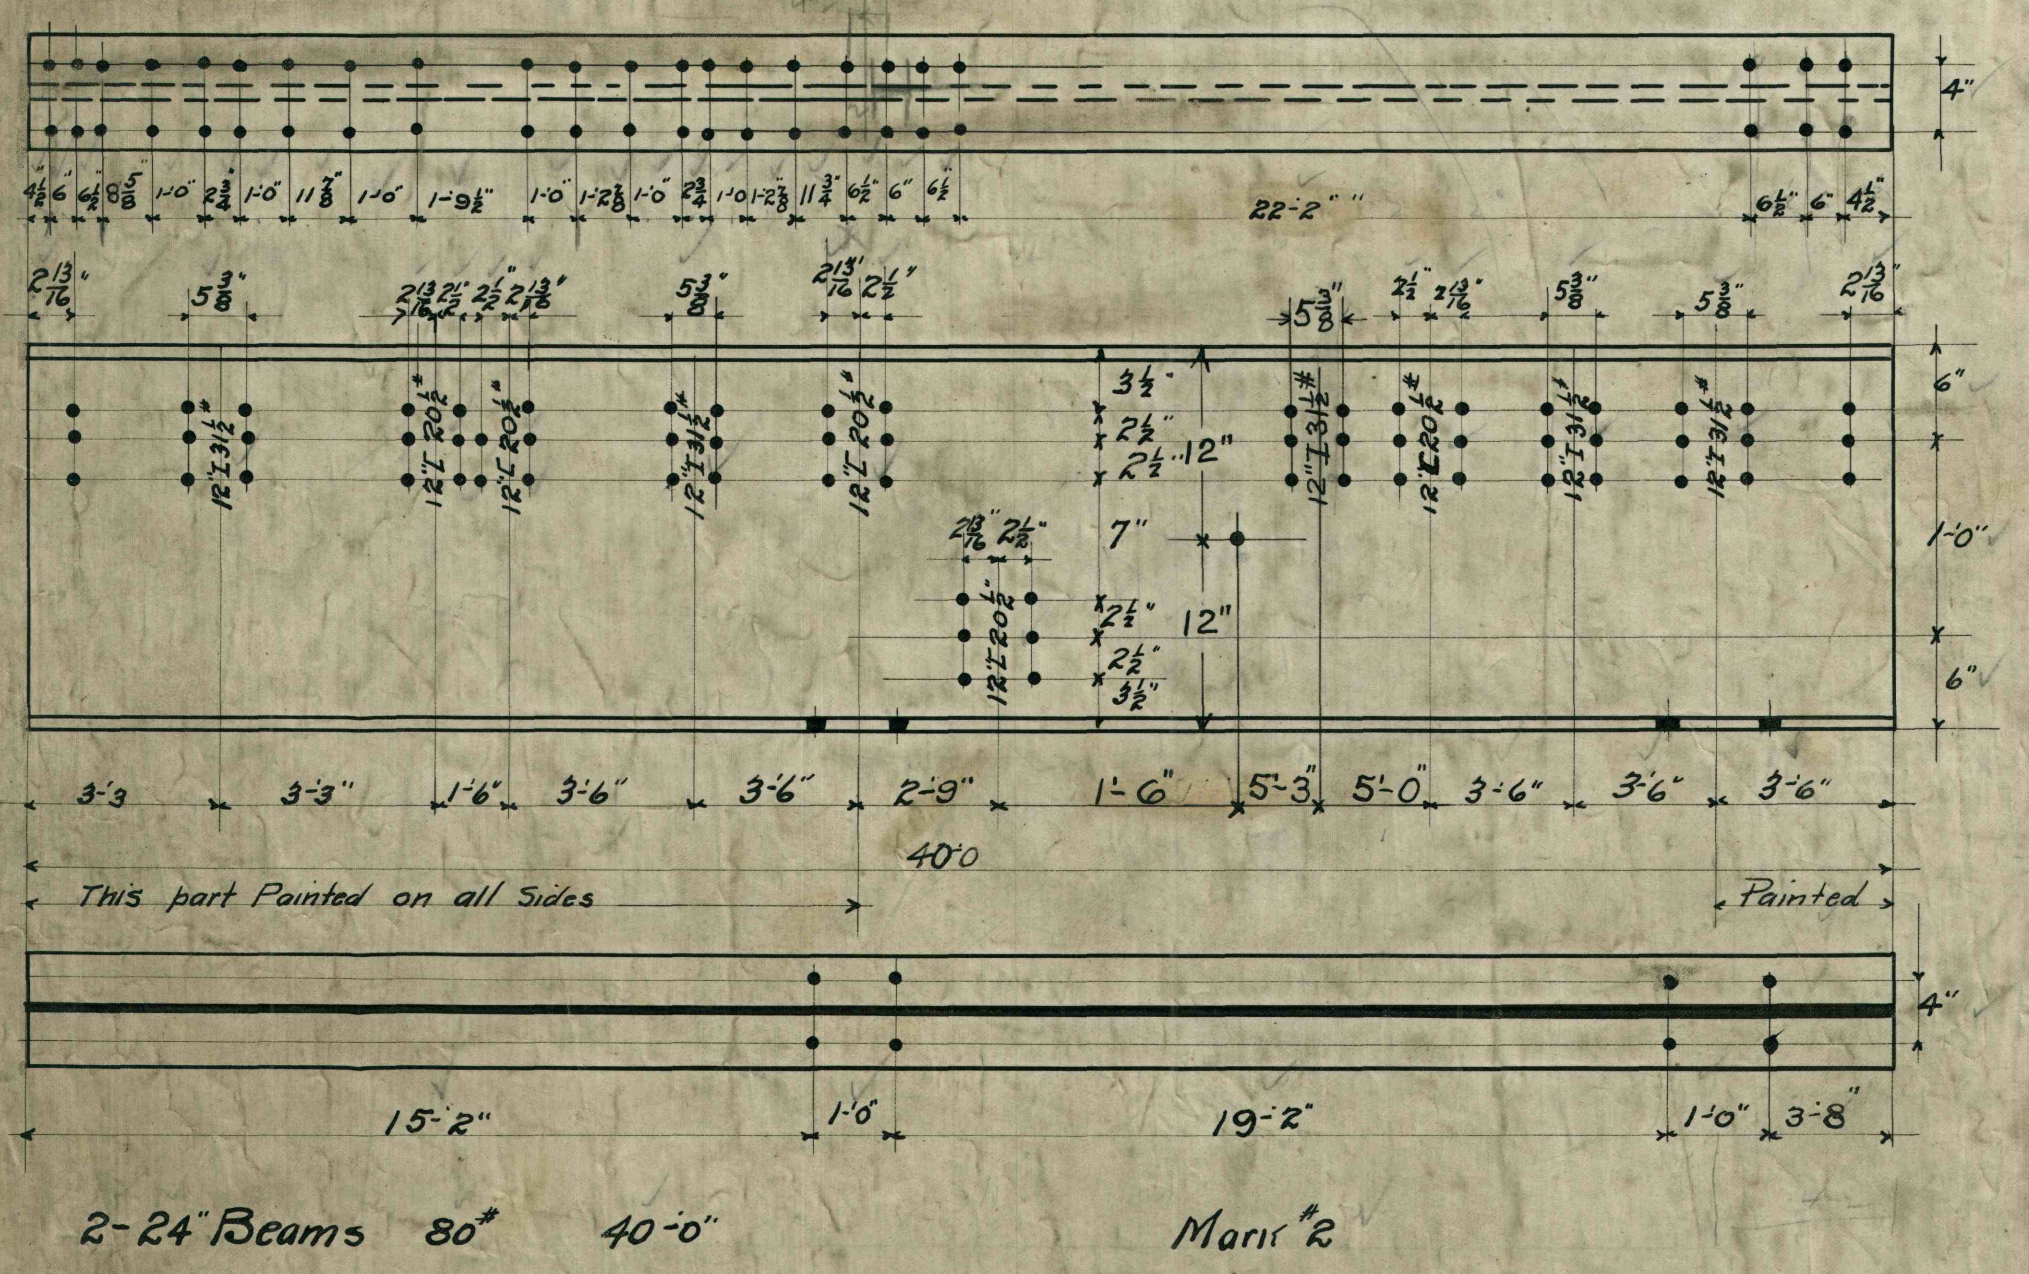 4"
4½" 6" 6½" 8⅝" 1'-0" 2¾" 1'-0" 11⅞" 1'-0" 1'-9½" 1'-0" 1'-2⅞ 1'-0" 2¾ 1'-0 1'-2⅞" 11¾" 6½" 6" 6½" 22'-2" " 6½" 6" 4½"
2 13/16" 5⅜" 2 13/16 2½" 2½" 2 13/16" 5⅜" 2 13/16" 2½" 5⅜" 2½" 2 13/16" 5⅜" 5⅜" 2 13/16"
12" I 31½# 12" [ 20½# 12" [ 20½# 12" I 31½# 12" [ 20½# 12" I 31½# 12" [ 20½# 12" I 31½# 12" I 31½#
3½" 6"
2½"
2½" 12"
2 13/16" 2½" 7" 1'-0"
12" [ 20½" 2½" 12"
2½" 6"
3½"
3'-3 3'-3" 1'-6" 3'-6" 3'-6" 2'-9" 1'-6" 5'-3" 5'-0" 3'-6" 3'-6" 3'-6"
40'0
This part Painted on all Sides Painted
4"
15'-2" 1'-0" 19'-2" 1'-0" 3'-8"
2-24" Beams 80# 40'-0" Mark #2